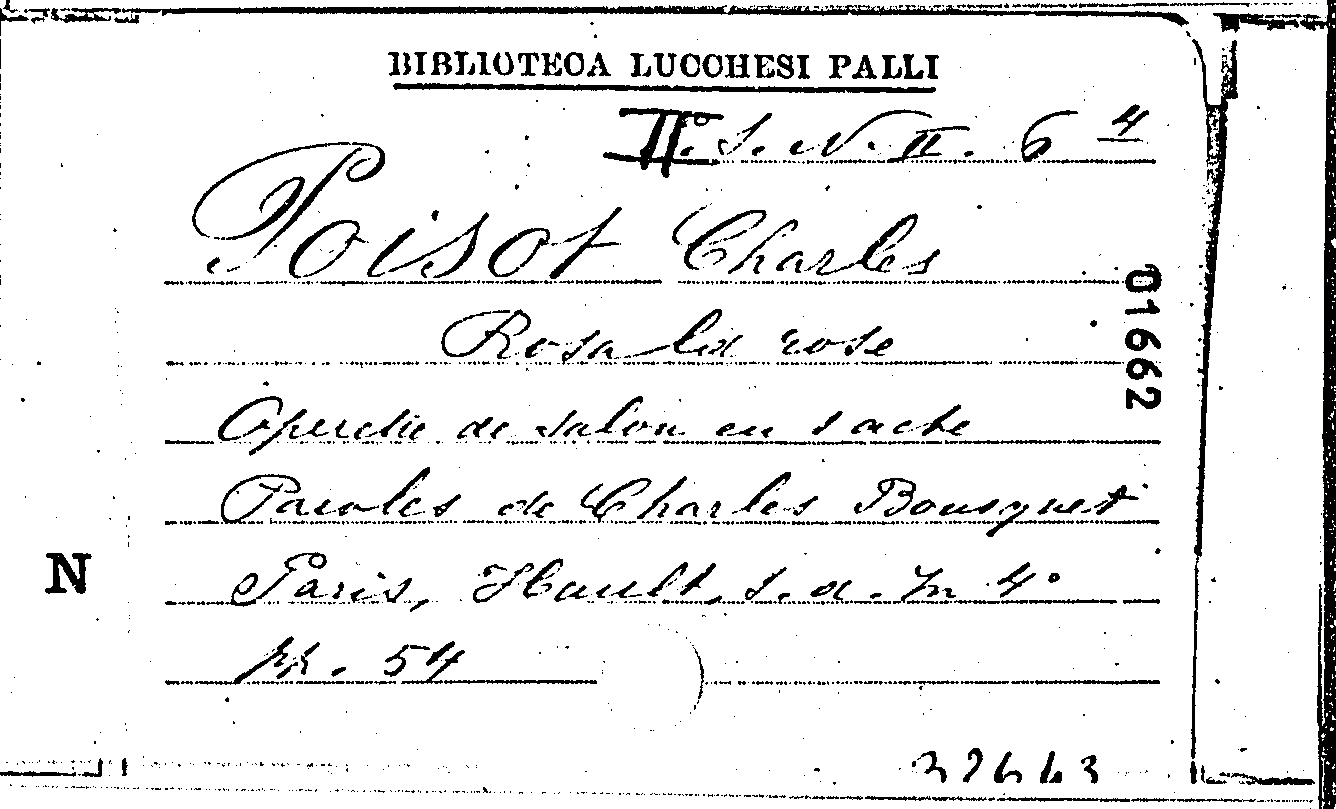 BIBLIOTECA LUCCHESI PALLI
II°. S. N. II. 6 4
Poisot Charles
Rosa la rose
Operette de salon en 1 acte
Paroles de Charles Bousquet
Paris, Hault, s. d. In 4°
pp. 54
01662
N